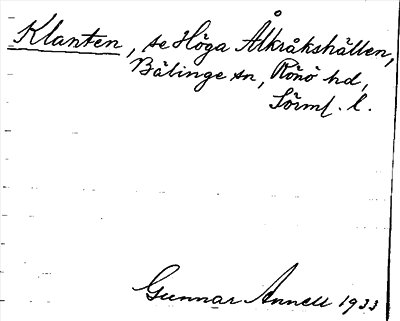 Klanten, se Höga Ålkråkshällen,
Bälinge sn, Rönö hd,
Sörml. l.
Gunnar Annell 1933